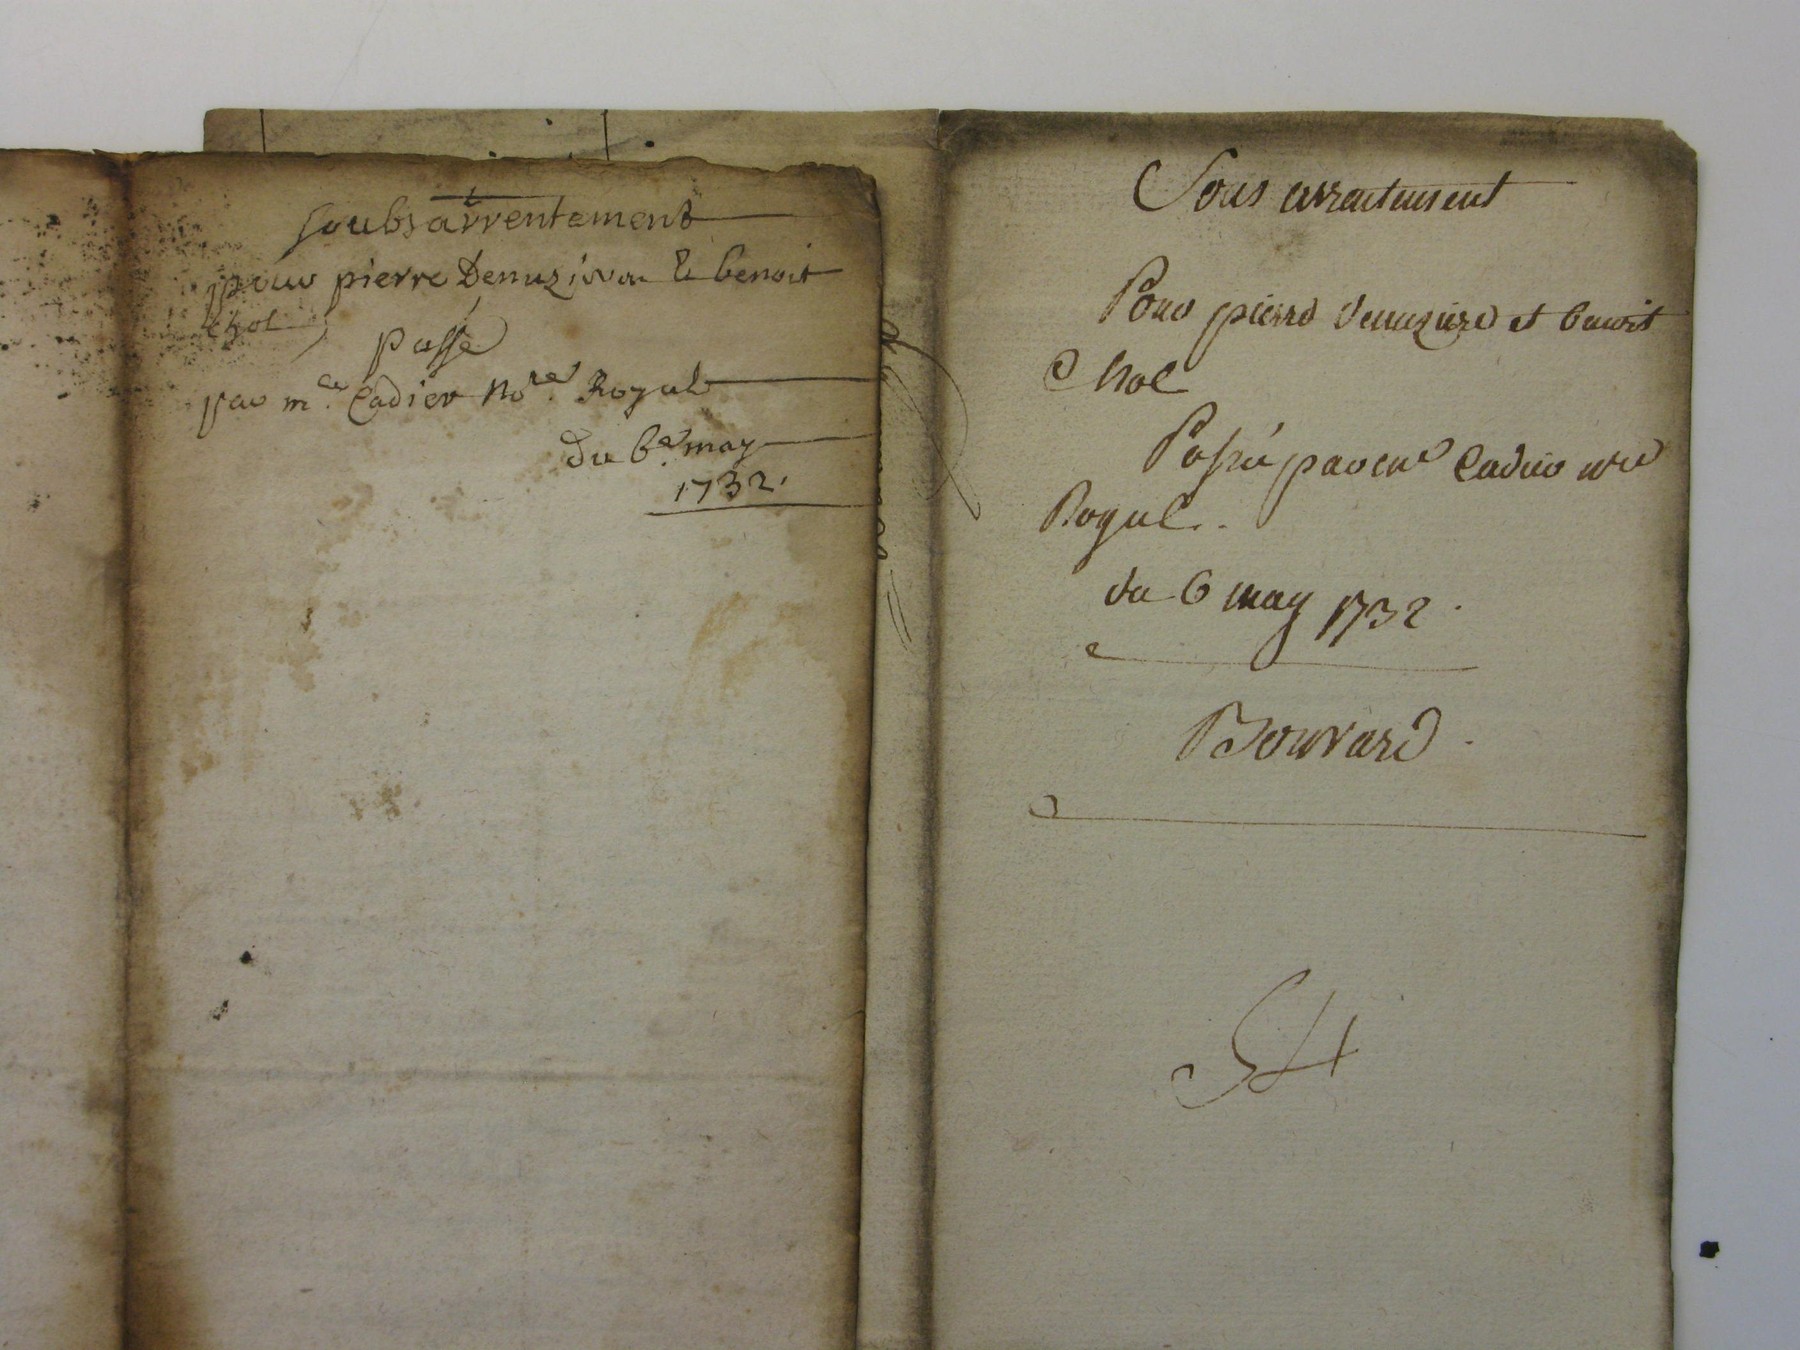 soubsarrentement
pour pierre Denuziere & benoit
chol
Passé
par me. Cadier nore. Royal
du 6e. may
1732.
Sous arrentement
Pour pierre denuziere et benoit
Chol
Passé par me Cadier nre
Royal.
du 6 may 1732.
Bouvard.